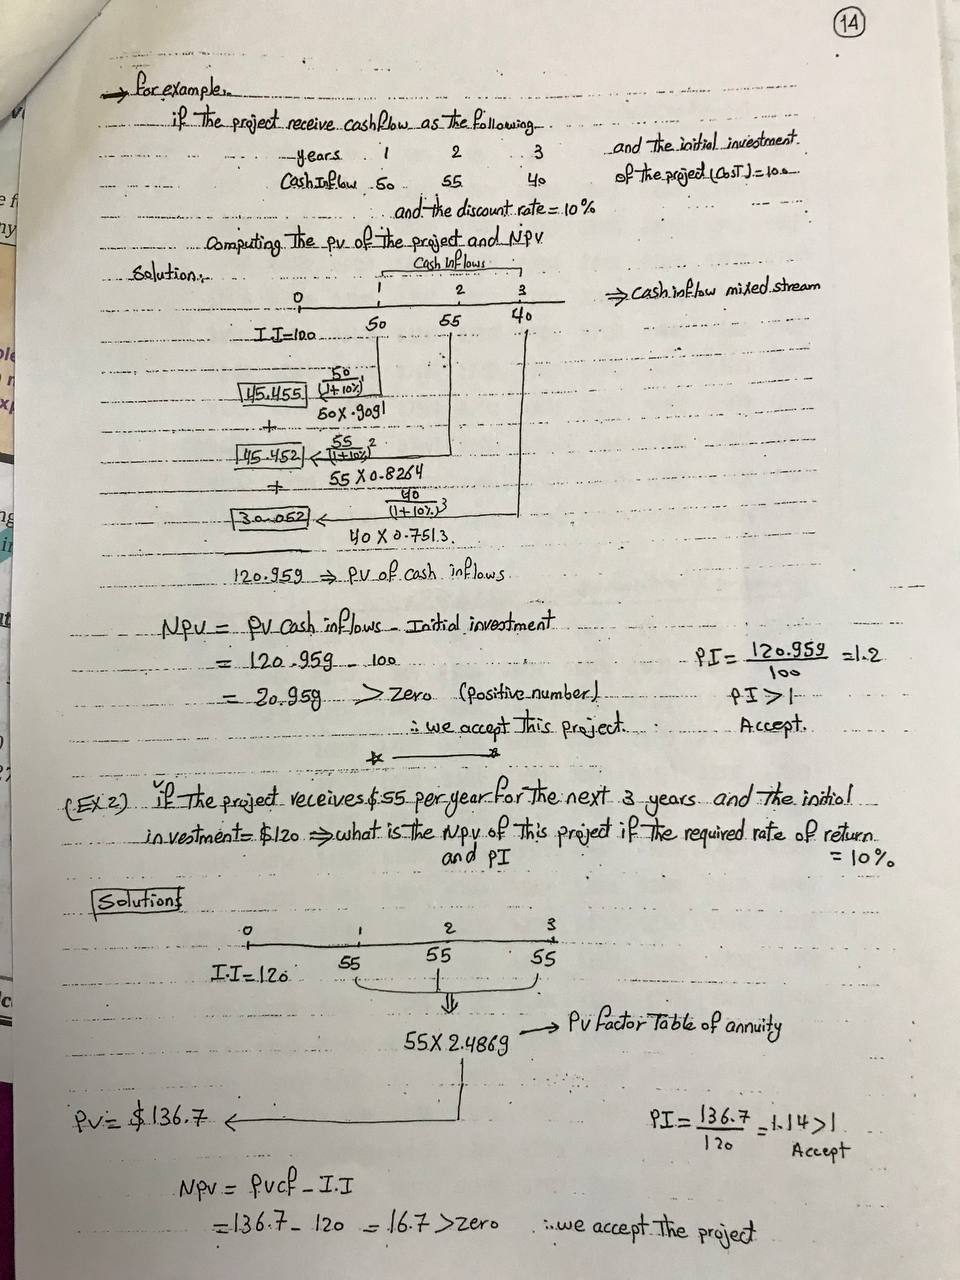 14
→ For example:
if The project receive cashflow as The following
years 1 2 3 and The initial investment
Cash Inflow 50 55 40 of the project (CosT) = 100
and the discount rate = 10%
Computing The pv of the project and NPV
Solution:
Cash Inflows
0 1 2 3 ⇒ Cash inflow mixed stream
I I = 100 50 55 40
45.455 50/(1+10%)¹
50 X .9091
+
45.452 ← 55/(1+10%)²
+ 55 X 0.8264
30.052 ← 40/(1+10%)³
40 X 0.7513.
120.959 ⇒ PV of cash inflows
NPV = PV Cash inflows - Initial investment
= 120.959 - 100 PI = 120.959/100 = 1.2
= 20.959 > Zero (Positive number) PI > 1
∴ we accept This project. Accept.
(EX 2) if The project receives $55 per year for The next 3 years and The initial
investment = $120 ⇒ what is the NPV of This project if The required rate of return
and PI = 10%
Solution:
0 1 2 3
I.I = 120 55 55 55
⇓
55 X 2.4869 → PV factor Table of annuity
PV = $136.7 ← PI = 136.7/120 = 1.14 > 1
Accept
NPV = PVcf - I.I
= 136.7 - 120 = 16.7 > zero ∴ we accept The project